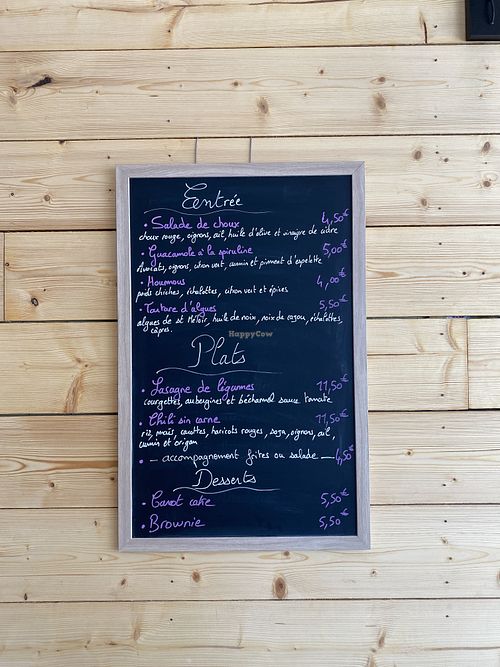 Entrée
• Salade de choux 4,50€
choux rouge, oignons, ail, huile d'olive et vinaigre de cidre
• Guacamole à la spiruline 5,00€
Avocats, oignons, citron vert, cumin et piment d'espelette
• Houmous 4,00€
pois chiches, échalottes, citron vert et épices
• Tartare d'algues 5,50€
algues de st Meloir, huile de noix, noix de cajou, échalottes,
câpres.
HappyCow
Plats
• Lasagne de légumes 11,50€
courgettes, aubergines et béchamel sauce tomate
• Chili sin carne 11,50€
riz, maïs, carottes, haricots rouges, soja, oignons, ail,
cumin et origan
• — accompagnement frites ou salade — 4,50€
Desserts
• Carot cake 5,50€
• Brownie 5,50€